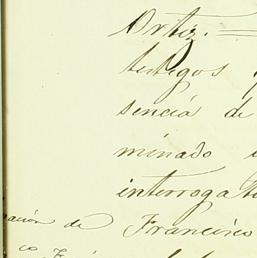 Ortiz.
testigos
sencia de
minado
interrogat
nación de Francisco
co F